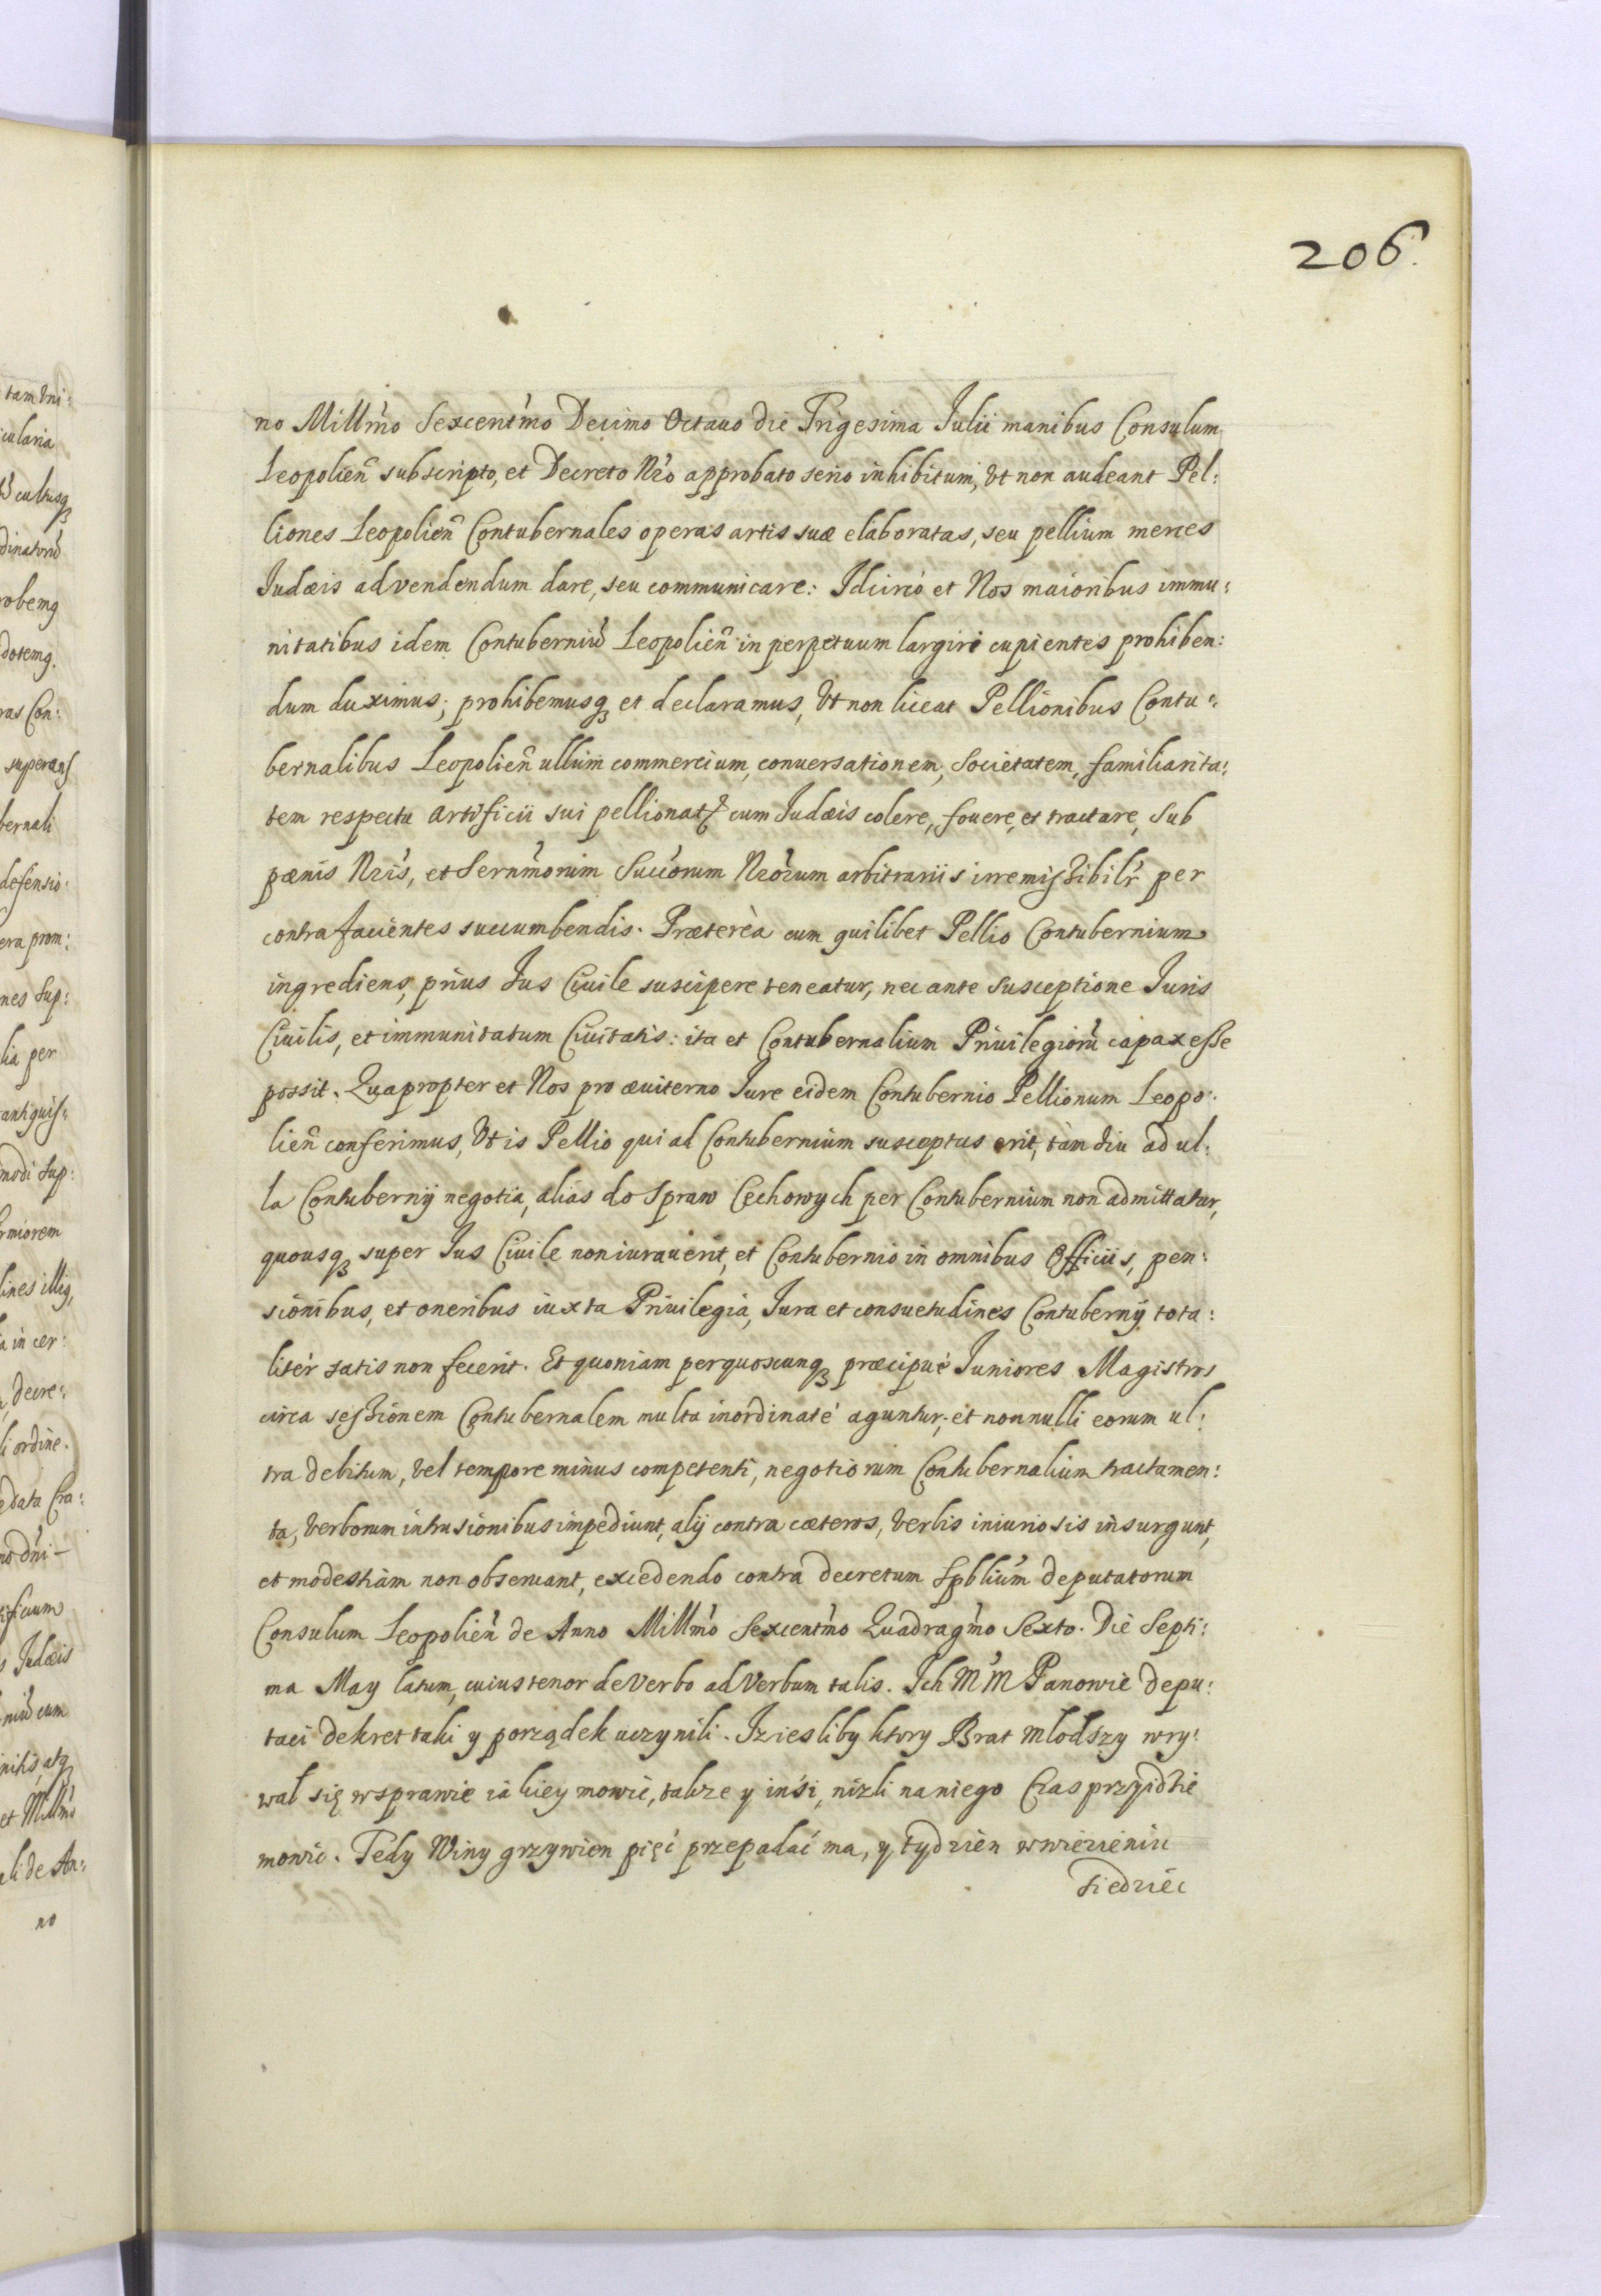 206.
no Millmo Sexcentmo Decimo Octauo die Trigesima Julii manibus Consulum
Leopolien subscripto, et Decreto Nro approbato serio inhibitum, Vt non audeant Pel:
liones Leopolien Contubernales operas artis suæ elaboratas, seu pellium merces
Judæis ad vendendum dare, seu communicare: Idcirco et Nos maioribus immu:
nitatibus idem Contuberniu Leopolien in perpetuum largiri cupientes prohiben:
dum duximus; prohibemusq et declaramus, Vt non liceat Pellionibus Contu:
bernalibus Leopolien ullum commercium, conuersationem, Societatem, familiarita:
tem respectu artificii sui pellionat cum Judæis colere, fouere, et tractare, Sub
pænis Nris, et Sernmorum Succorum Nrorum arbitrariis irremissibilr per
contrafacientes succumbendis. Prætereà cum quilibet Pellio Contubernium
ingrediens, prius Jus Ciuile suscipere teneatur, nec ante Susceptione Juris
Ciuilis, et immunitatum Ciuitatis: ita et Contubernalium Priuilegioru capax esse
possit. Quapropter et Nos pro æuiterno Jure eidem Contubernio Pellionum Leopo:
lien conferimus, Vt is Pellio qui ad Contubernium susceptus erit, tàm diu ad ul:
la Contubernij negotia, aliàs do Spraw Cechowych per Contubernium non admittatur,
quousq super Jus Ciuile non iurauerit, et Contubernio in omnibus Officiis, pen:
sionibus, et oneribus iuxta Priuilegia, Jura et consuetudines Contubernij tota:
litèr satis non fecerit. Et quoniam per quoscunq præcipuè Juniores Magistros
circa sessionem Contubernalem multa inordinatè aguntur, et nonnulli eorum ul:
tra debitum, Vel tempore minus competenti, negotiorum Contubernalium tractamen:
ta, Verborum intrusionibus impediunt, alij contra cæteros, Verbis iniuriosis insurgunt,
et modestiam non obseruant, excedendo contra decretum Spblium deputatorum
Consulum Leopolien de Anno Millmo Sexcentmo Quadragmo Sexto. Die Septi:
ma May latum, cuius tenor de Verbo ad Verbum talis. Ich M M Panowie depu:
taci dekret taki y porządek uczynili. Iz iesliby ktory Brat mlodszy wry:
wał się w sprawie iakiey mowić, także y inśi, niżli na niego Czas przyidzie
mowic. Tedy Winy grzywien pięć przepadać ma, y tydzien w wiezieniu
siedziéc